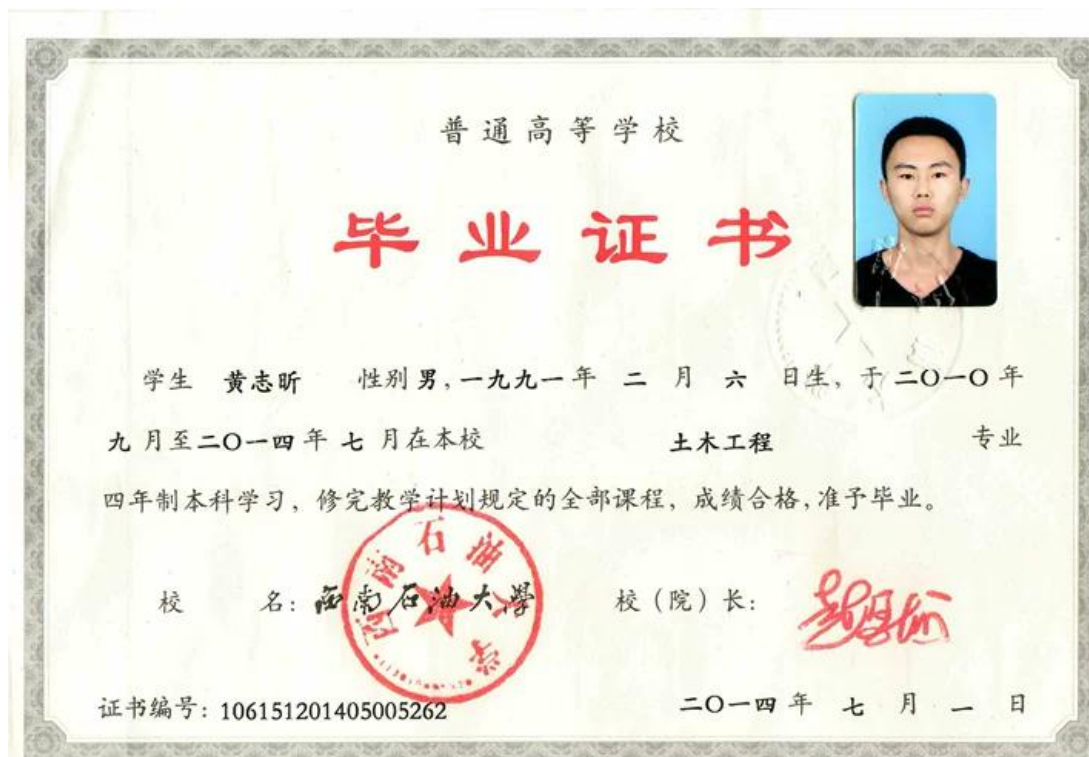 普通高等学校
毕业证书
学生 黄志昕 性别 男，一九九一年 二 月 六 日生，于二〇一〇年
九月至二〇一四年 七 月在本校 土木工程 专业
四年制本科学习，修完教学计划规定的全部课程，成绩合格，准予毕业。
校 名：西南石油大學 校（院）长：
西南石油大学
证书编号：106151201405005262 二〇一四年 七 月 一 日